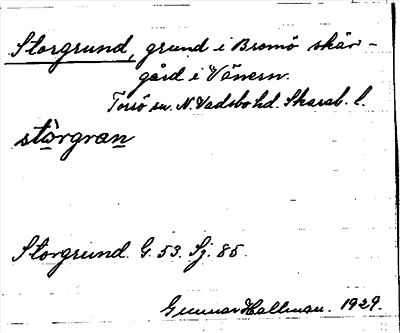 Storgrund, grund i Bromö skär-
gård i Vänern.
Torsö sn. N. Vadsbo hd. Skarab. l.
stòrgran
Storgrund. G. 53. Sj. 85.
Gunnar Hallman. 1929.